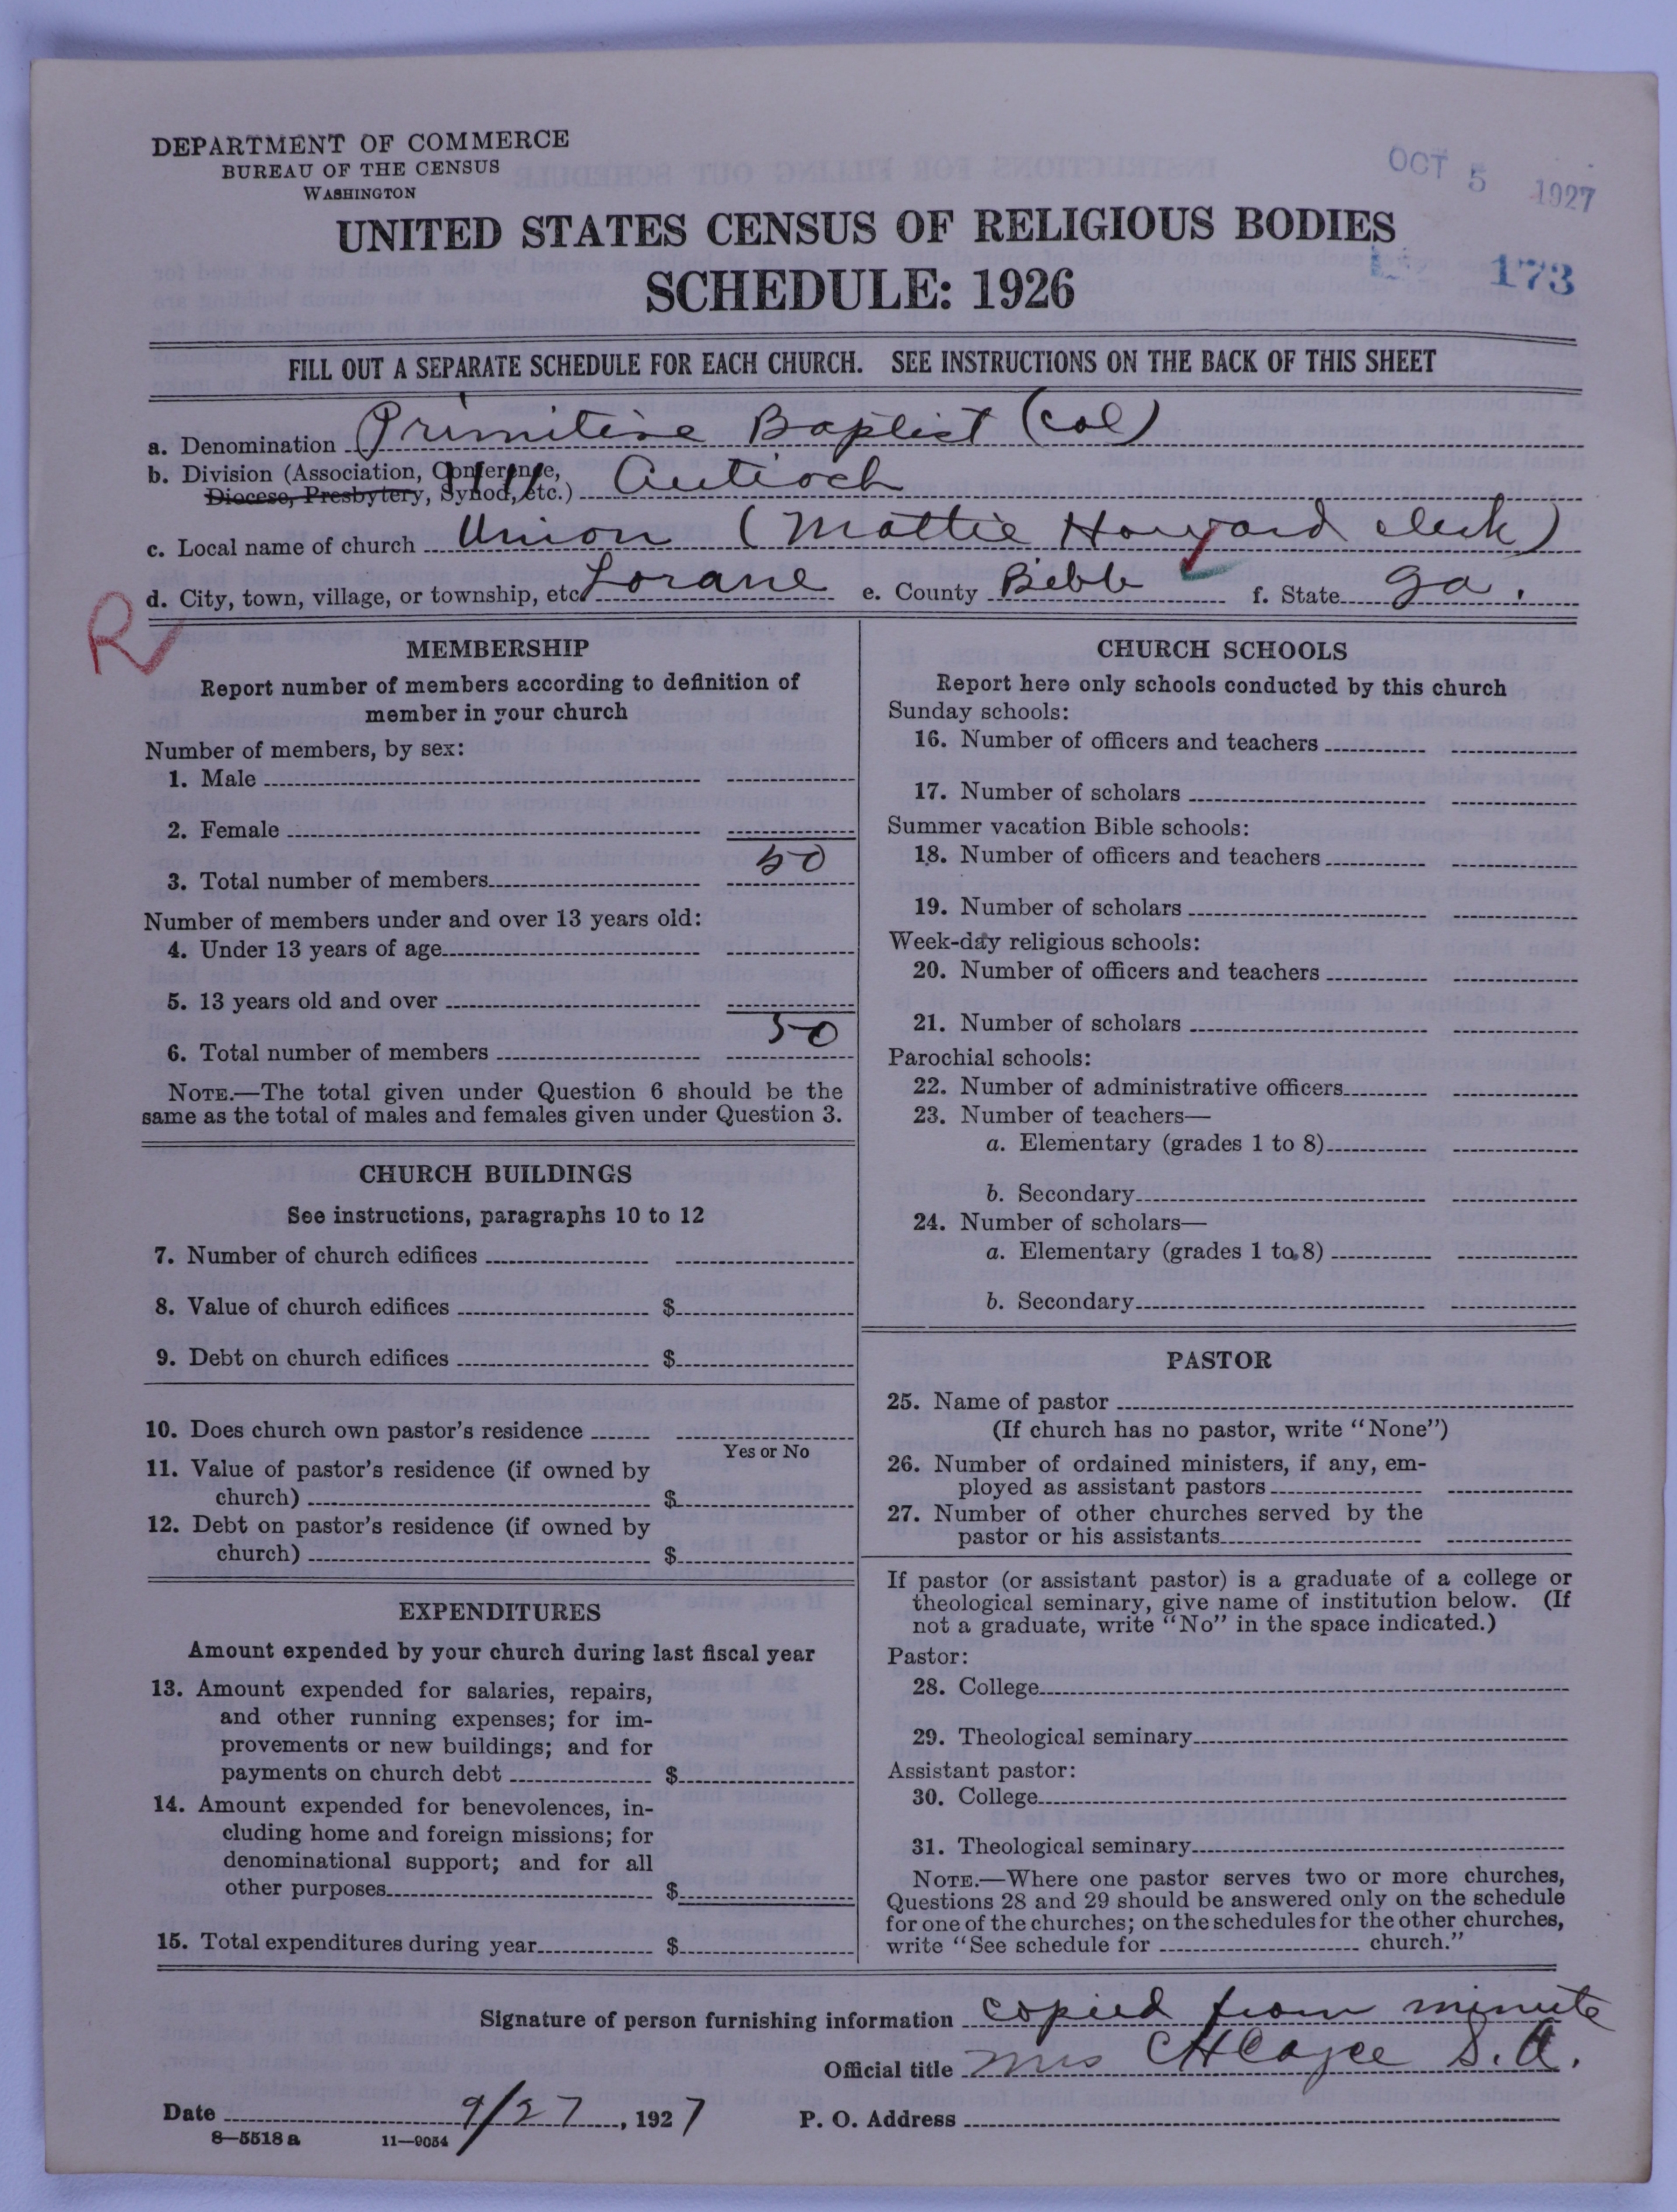 DEPARTMENT OF COMMERCE
BUREAU OF THE CENSUS
WASHINGTON
OCT 5 1927
UNITED STATES CENSUS OF RELIGIOUS BODIES
SCHEDULE: 1926
173
FILL OUT A SEPARATE SCHEDULE FOR EACH CHURCH. SEE INSTRUCTIONS ON THE BACK OF THIS SHEET
a. Denomination Primitive Baptist (Col)
b. Division (Association, Conference,
Diocese, Presbytery, Synod, etc.) Antioch
c. Local name of church Union (Mattie Howard clerk)
d. City, town, village, or township, etc. Lorane e. County Bibb f. State Ga.
R
MEMBERSHIP
Report number of members according to definition of
member in your church
Number of members, by sex:
1. Male
2. Female
3. Total number of members 50
Number of members under and over 13 years old:
4. Under 13 years of age
5. 13 years old and over
6. Total number of members 50
NOTE.—The total given under Question 6 should be the
same as the total of males and females given under Question 3.
CHURCH BUILDINGS
See instructions, paragraphs 10 to 12
7. Number of church edifices
8. Value of church edifices $
9. Debt on church edifices $
10. Does church own pastor's residence
Yes or No
11. Value of pastor's residence (if owned by
church) $
12. Debt on pastor's residence (if owned by
church) $
EXPENDITURES
Amount expended by your church during last fiscal year
13. Amount expended for salaries, repairs,
and other running expenses; for im-
provements or new buildings; and for
payments on church debt $
14. Amount expended for benevolences, in-
cluding home and foreign missions; for
denominational support; and for all
other purposes $
15. Total expenditures during year $
CHURCH SCHOOLS
Report here only schools conducted by this church
Sunday schools:
16. Number of officers and teachers
17. Number of scholars
Summer vacation Bible schools:
18. Number of officers and teachers
19. Number of scholars
Week-day religious schools:
20. Number of officers and teachers
21. Number of scholars
Parochial schools:
22. Number of administrative officers
23. Number of teachers—
a. Elementary (grades 1 to 8)
b. Secondary
24. Number of scholars—
a. Elementary (grades 1 to 8)
b. Secondary
PASTOR
25. Name of pastor
(If church has no pastor, write "None")
26. Number of ordained ministers, if any, em-
ployed as assistant pastors
27. Number of other churches served by the
pastor or his assistants
If pastor (or assistant pastor) is a graduate of a college or
theological seminary, give name of institution below. (If
not a graduate, write "No" in the space indicated.)
Pastor:
28. College
29. Theological seminary
Assistant pastor:
30. College
31. Theological seminary
NOTE.—Where one pastor serves two or more churches,
Questions 28 and 29 should be answered only on the schedule
for one of the churches; on the schedules for the other churches,
write "See schedule for church."
Signature of person furnishing information copied from minute
Official title Mrs C H Cayce S. A.
Date 9/27, 1927 P. O. Address
8—5518 a 11—9054